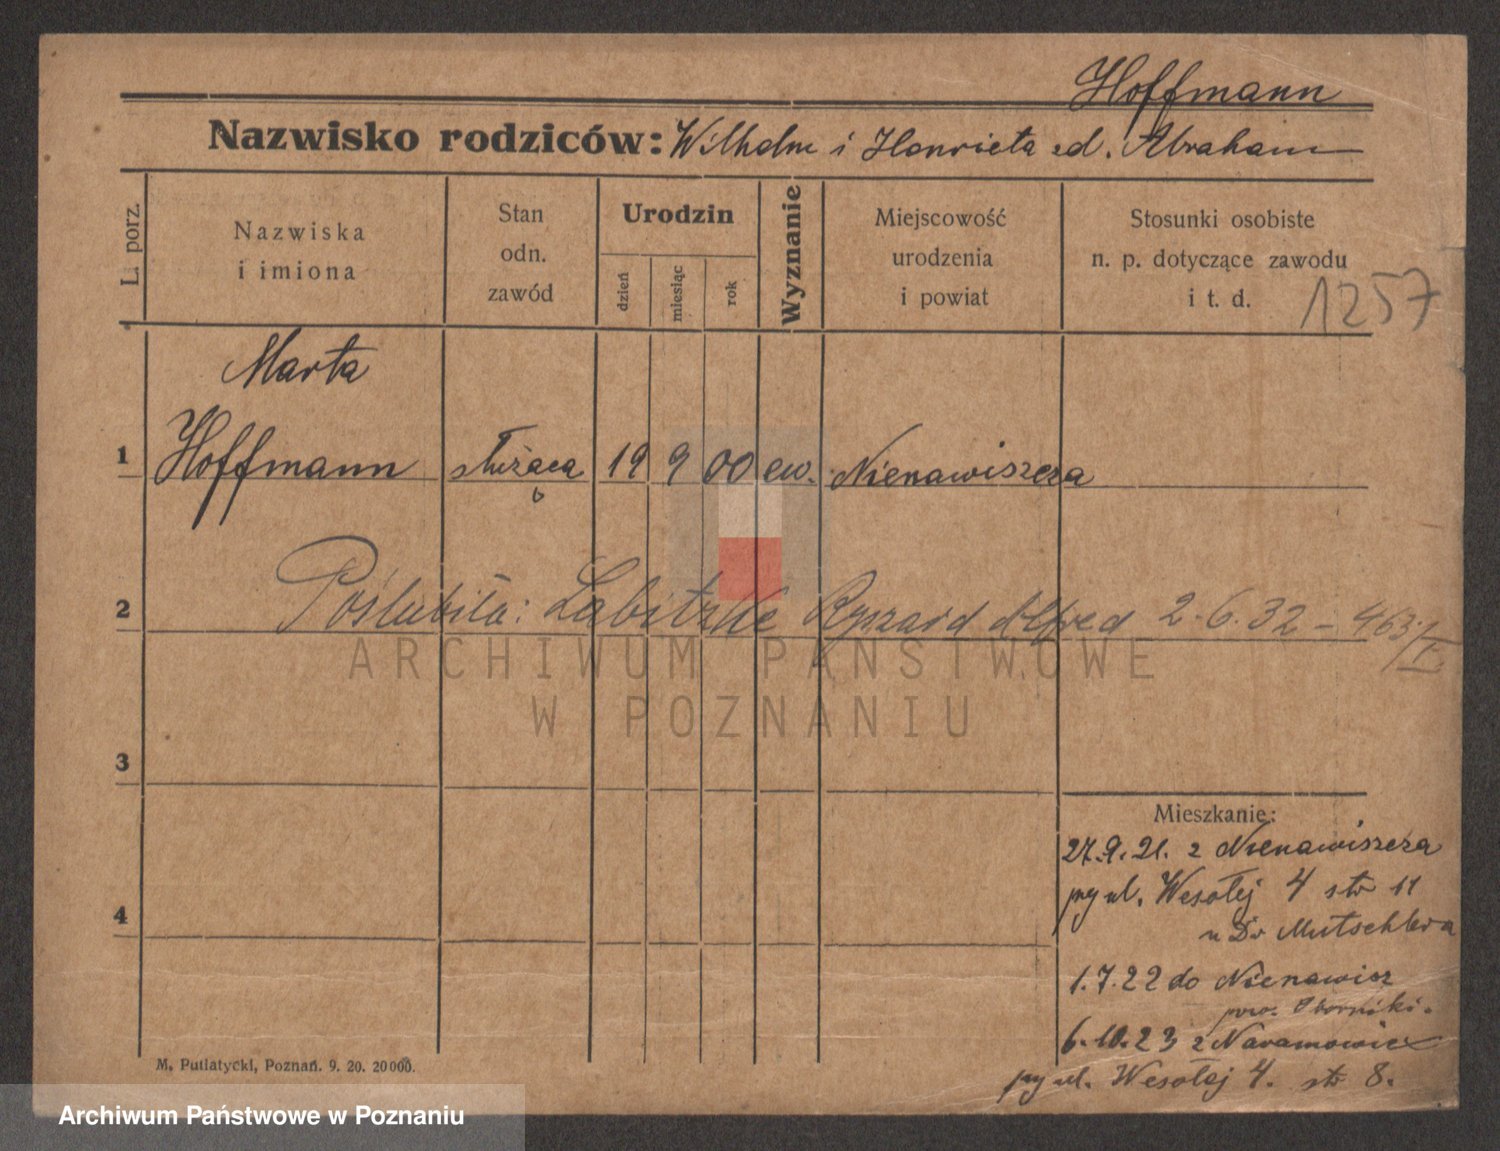 Hoffmann
Nazwisko rodziców: Wilhelm i Henrieta zd. Abraham
L. porz.
Nazwiska
i imiona
Stan
odn.
zawód
Urodzin
dzień
miesiąc
rok
Wyznanie
Miejscowość
urodzenia
i powiat
Stosunki osobiste
n. p. dotyczące zawodu
i t. d.
1257
Marta
1 Hoffmann służąca 19 9 00 ew. Nienawiszcza
2 Poślubiła: Labitzke Ryszard Alfred 2.6.32 – 463/I
ARCHIWUM PAŃSTWOWE
W POZNANIU
3
Mieszkanie:
27.9.21. z Nienawiszcza
przy ul. Wesołej 4 str 11
4
u Dr Mutschlera
1.7.22 do Nienawisz
pow. Oborniki.
6.10.23 z Naramowic
przy ul. Wesołej 4. str 8.
M. Putiatycki, Poznań. 9. 20. 20000.
Archiwum Państwowe w Poznaniu